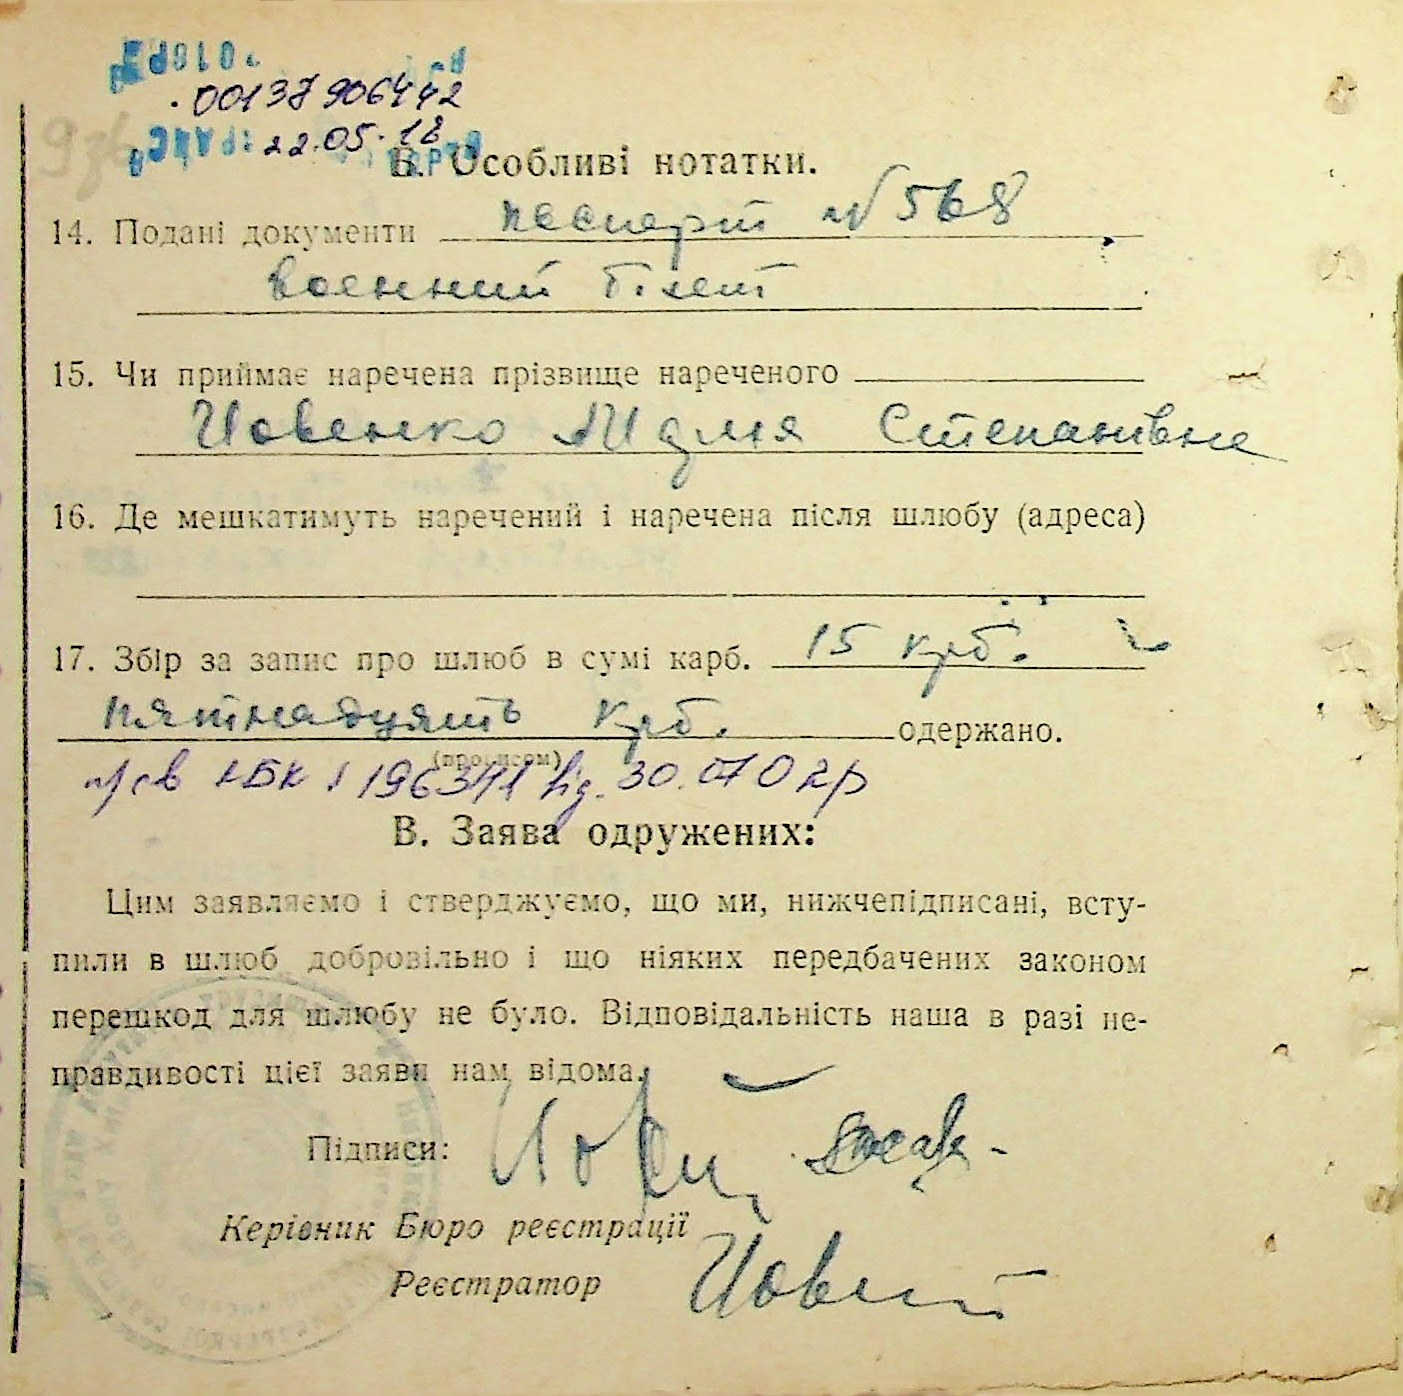 00137906442
22.05.18
Б. Особливі нотатки.
14. Подані документи паспорт № 568
военний білет
15. Чи приймає наречена прізвище нареченого
Степанівна
16. Де мешкатимуть наречений і наречена після шлюбу (адреса)
17. Збір за запис про шлюб в сумі карб. 15 крб.
пятнадцять крб. одержано.
(прописом)
196341 від. 30.07.02р
В. Заява одружених:
Цим заявляємо і стверджуємо, що ми, нижчепідписані, всту-
пили в шлюб добровільно і що ніяких передбачених законом
перешкод для шлюбу не було. Відповідальність наша в разі не-
правдивості цієї заяви нам відома.
Підписи:
Керівник Бюро реєстрації
Реєстратор